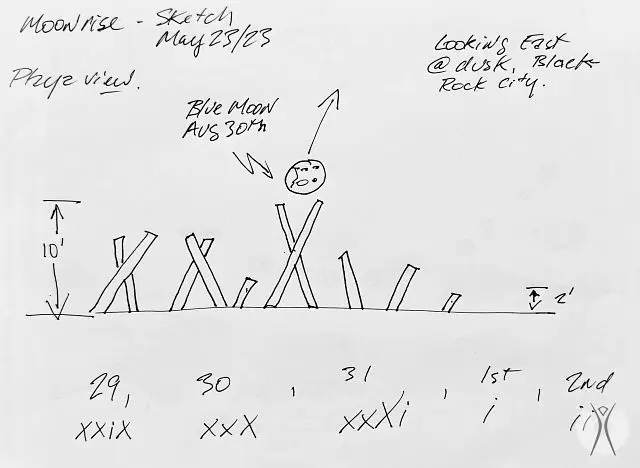 Moonrise - Sketch
May 23/23
Phyz view.
Looking East
@ dusk, Black
Rock City.
Blue Moon
Aug 30th
10'
2'
29, 30, 31, 1st, 2nd
xxix xxx xxxi i ii